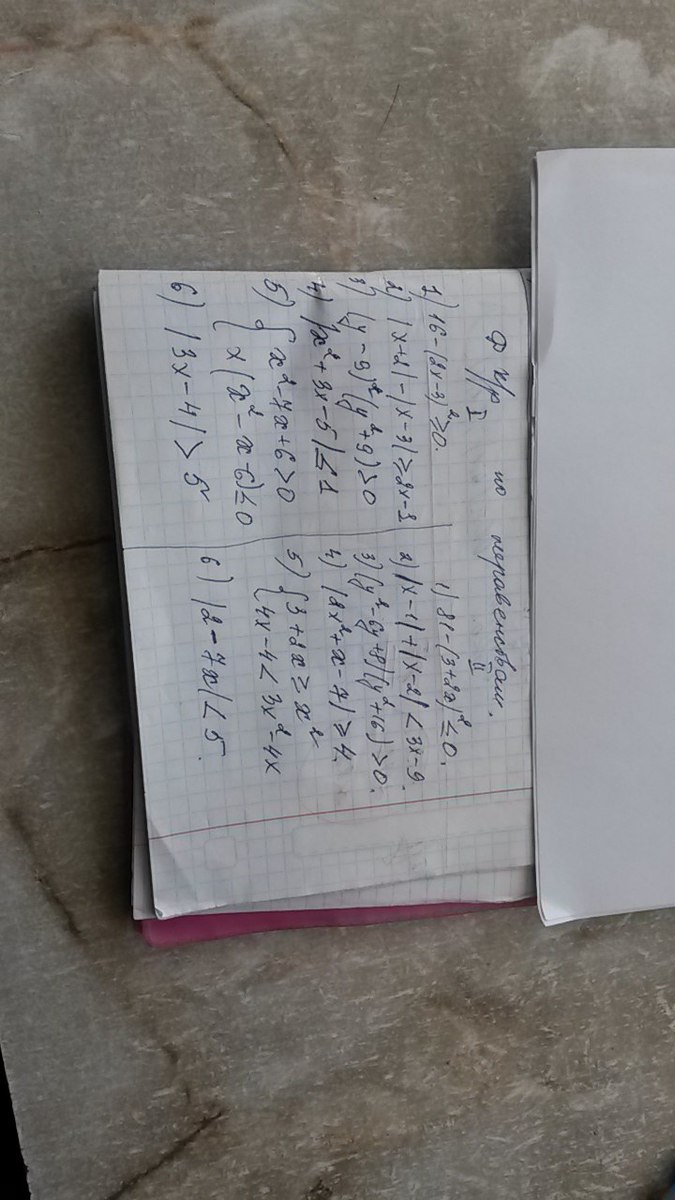 Ф У/р по неравенствам.
I
1) 16-(2x-3)²≥0.
2) |x+2|-|x-3|≥2x-3
3) (y-3)²(y²+9)>0
4) |x²+3x-5|≤1
5) { x²-7x+6>0
x(x²-x-6)≤0
6) |3x-4|>5
II
1) 81-(3+2x)²≤0.
2) |x-1|+|x-2|<3x-9.
3) (y²-6y+8)(y²+16)>0.
4) |2x²+x-7|≥4.
5) { 3+2x≥x²
4x-4<3x²-4x
6) |2-7x|<5.